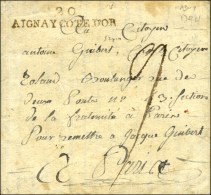 20
AIGNAY COTE D'OR
Au Citoyen
antoine Guibert, Citoyen
boulanger rue de
deux Porte n° 3. Section
de la fraternité a Paris
Pour remettre a Jacque Guibert
a Paris